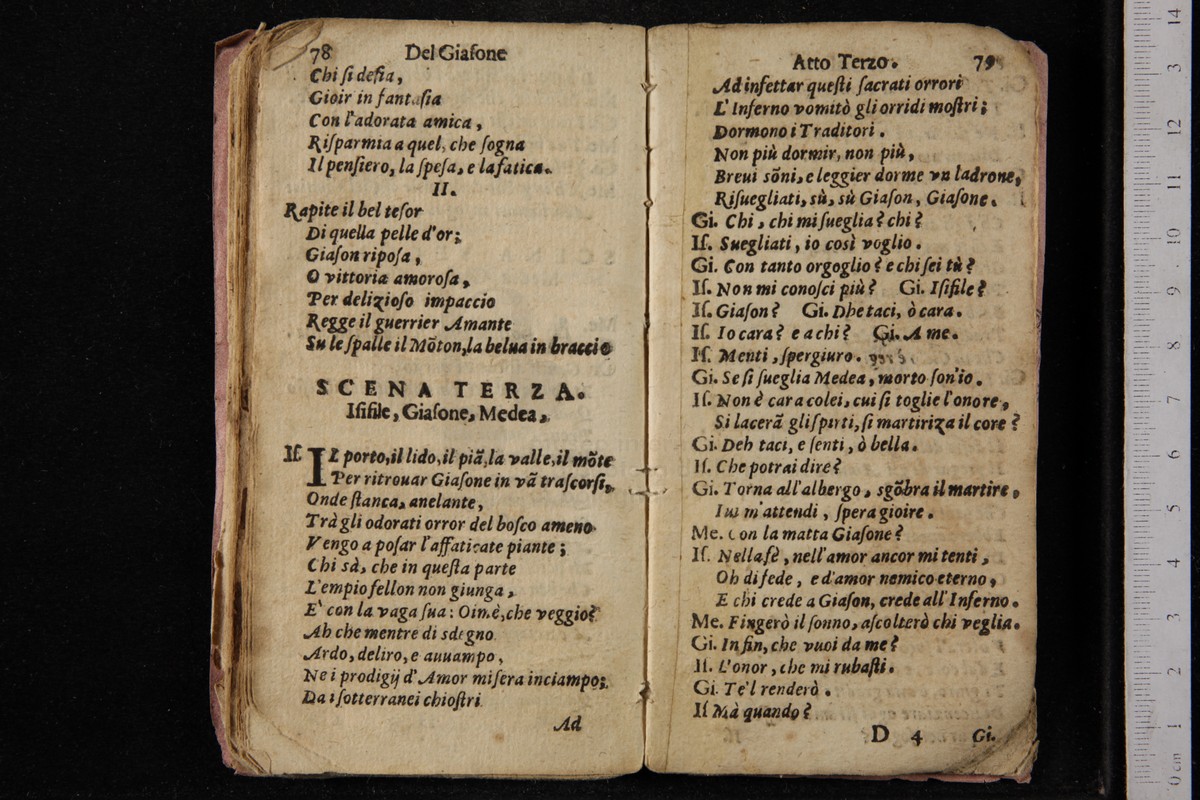 78 Del Giasone
Chi ſi deſia,
Gioir in fantaſia
Con l'adorata amica,
Riſparmia a quel, che ſogna
Il penſiero, la ſpeſa, e la fatica.
II.
Rapite il bel teſor
Di quella pelle d'or;
Giaſon ripoſa,
O vittoria amoroſa,
Per delizioſo impaccio
Regge il guerrier Amante
Su le ſpalle il Mõton, la belua in braccio
SCENA TERZA.
Iſifile, Giaſone, Medea.
Iſ. IL porto, il lido, il piã, la valle, il mõte
Per ritrouar Giaſone in vã traſcorſi,
Onde ſtanca, anelante,
Trà gli odorati orror del boſco ameno
Vengo a poſar l'affaticate piante;
Chi sà, che in queſta parte
L'empio fellon non giunga,
E' con la vaga ſua: Oimè, che veggio?
Ah che mentre di sdegno
Ardo, deliro, e auuampo,
Ne i prodigij d'Amor miſera inciampo;
Da i ſotterranei chioſtri
Ad
Atto Terzo. 79
Ad infettar queſti ſacrati orrori
L'Inferno vomitò gli orridi moſtri;
Dormono i Traditori.
Non più dormir, non più,
Breui sõni, e leggier dorme vn ladrone,
Riſuegliati, sù, sù Giaſon, Giaſone.
Gi. Chi, chi mi ſueglia? chi?
Iſ. Suegliati, io così voglio.
Gi. Con tanto orgoglio? e chi ſei tù?
Iſ. Non mi conoſci più? Gi. Iſifile?
Iſ. Giaſon? Gi. Dhe taci, ò cara.
Iſ. Io cara? e a chi? Gi. A me.
Iſ. Menti, ſpergiuro.
Gi. Se ſi ſueglia Medea, morto ſon'io.
Iſ. Non è cara colei, cui ſi toglie l'onore,
Si lacerã gli ſpirti, ſi martiriza il core?
Gi. Deh taci, e ſenti, ò bella.
Iſ. Che potrai dire?
Gi. Torna all'albergo, sgõbra il martire,
Iui m'attendi, ſpera gioire.
Me. Con la matta Giaſone?
Iſ. Nella fè, nell'amor ancor mi tenti,
Oh di fede, e d'amor nemico eterno,
E chi crede a Giaſon, crede all'Inferno.
Me. Fingerò il ſonno, aſcolterò chi veglia.
Gi. In fin, che vuoi da me?
Iſ. L'onor, che mi rubaſti.
Gi. Te'l renderò.
Iſ Mà quando?
D 4 Gi.
14
13
12
11
10
9
8
7
6
5
4
3
2
1
0 cm